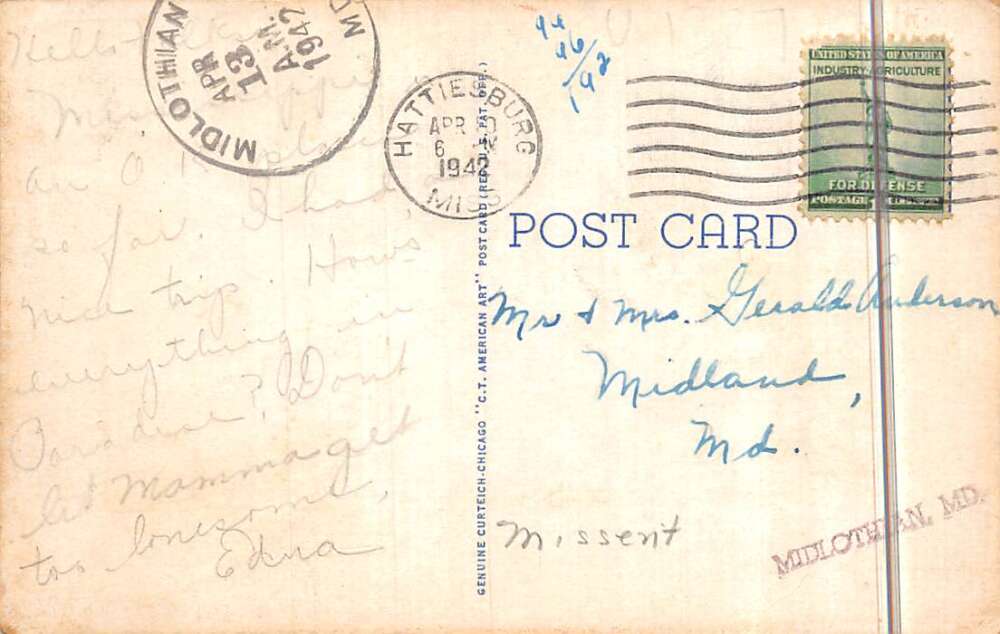 Hello
Mississippi
an O.K. place
so far. I had,
nice trip. Hows
everything in
Paradise? Don't
let Mamma get
too lonesome,
Edna
MIDLOTHIAN
APR
13
A.M.
1942
MD
HATTIESBURG
APR 10
6
1942
MISS
GENUINE CURTEICH-CHICAGO "C.T. AMERICAN ART" POST CARD (REG. U.S. PAT. OFF.)
UNITED STATES OF AMERICA
INDUSTRY AGRICULTURE
FOR DEFENSE
POSTAGE
POST CARD
Mr & Mrs. Gerald Anderson
Midland,
Md.
Missent
MIDLOTHIAN, MD.